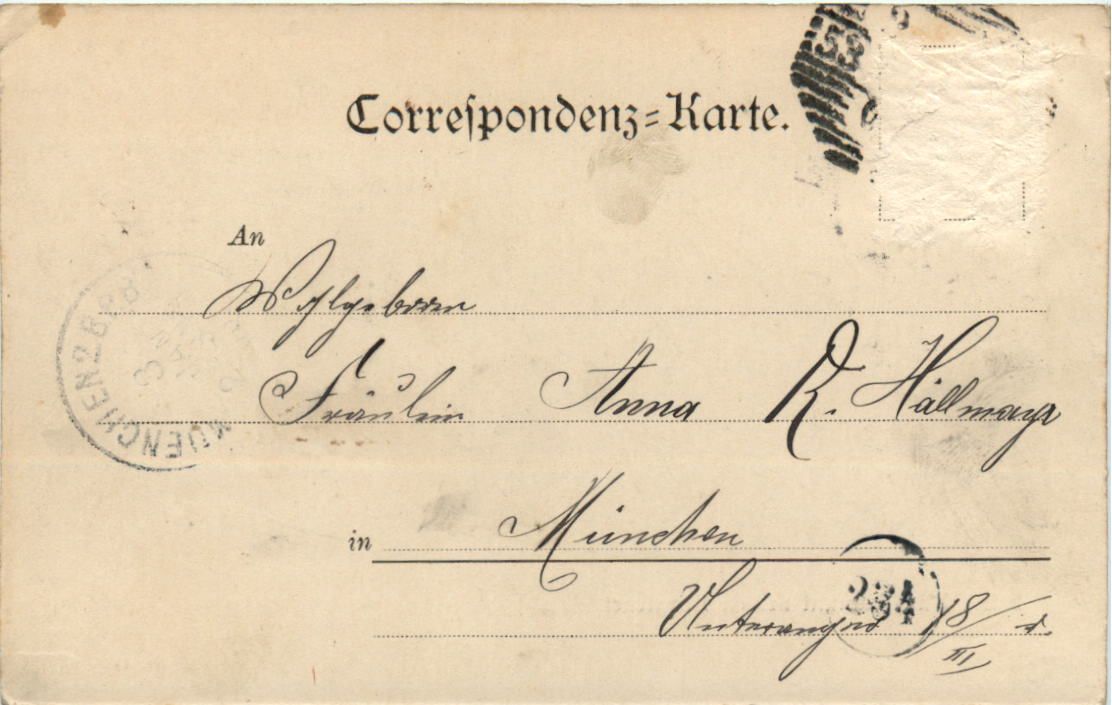 Correſpondenz-Karte.
An
Wohlgeboren
Fräulein Anna R. Hallmayr
in München
Unteranger 18/III
MUENCHEN 2 B.P.